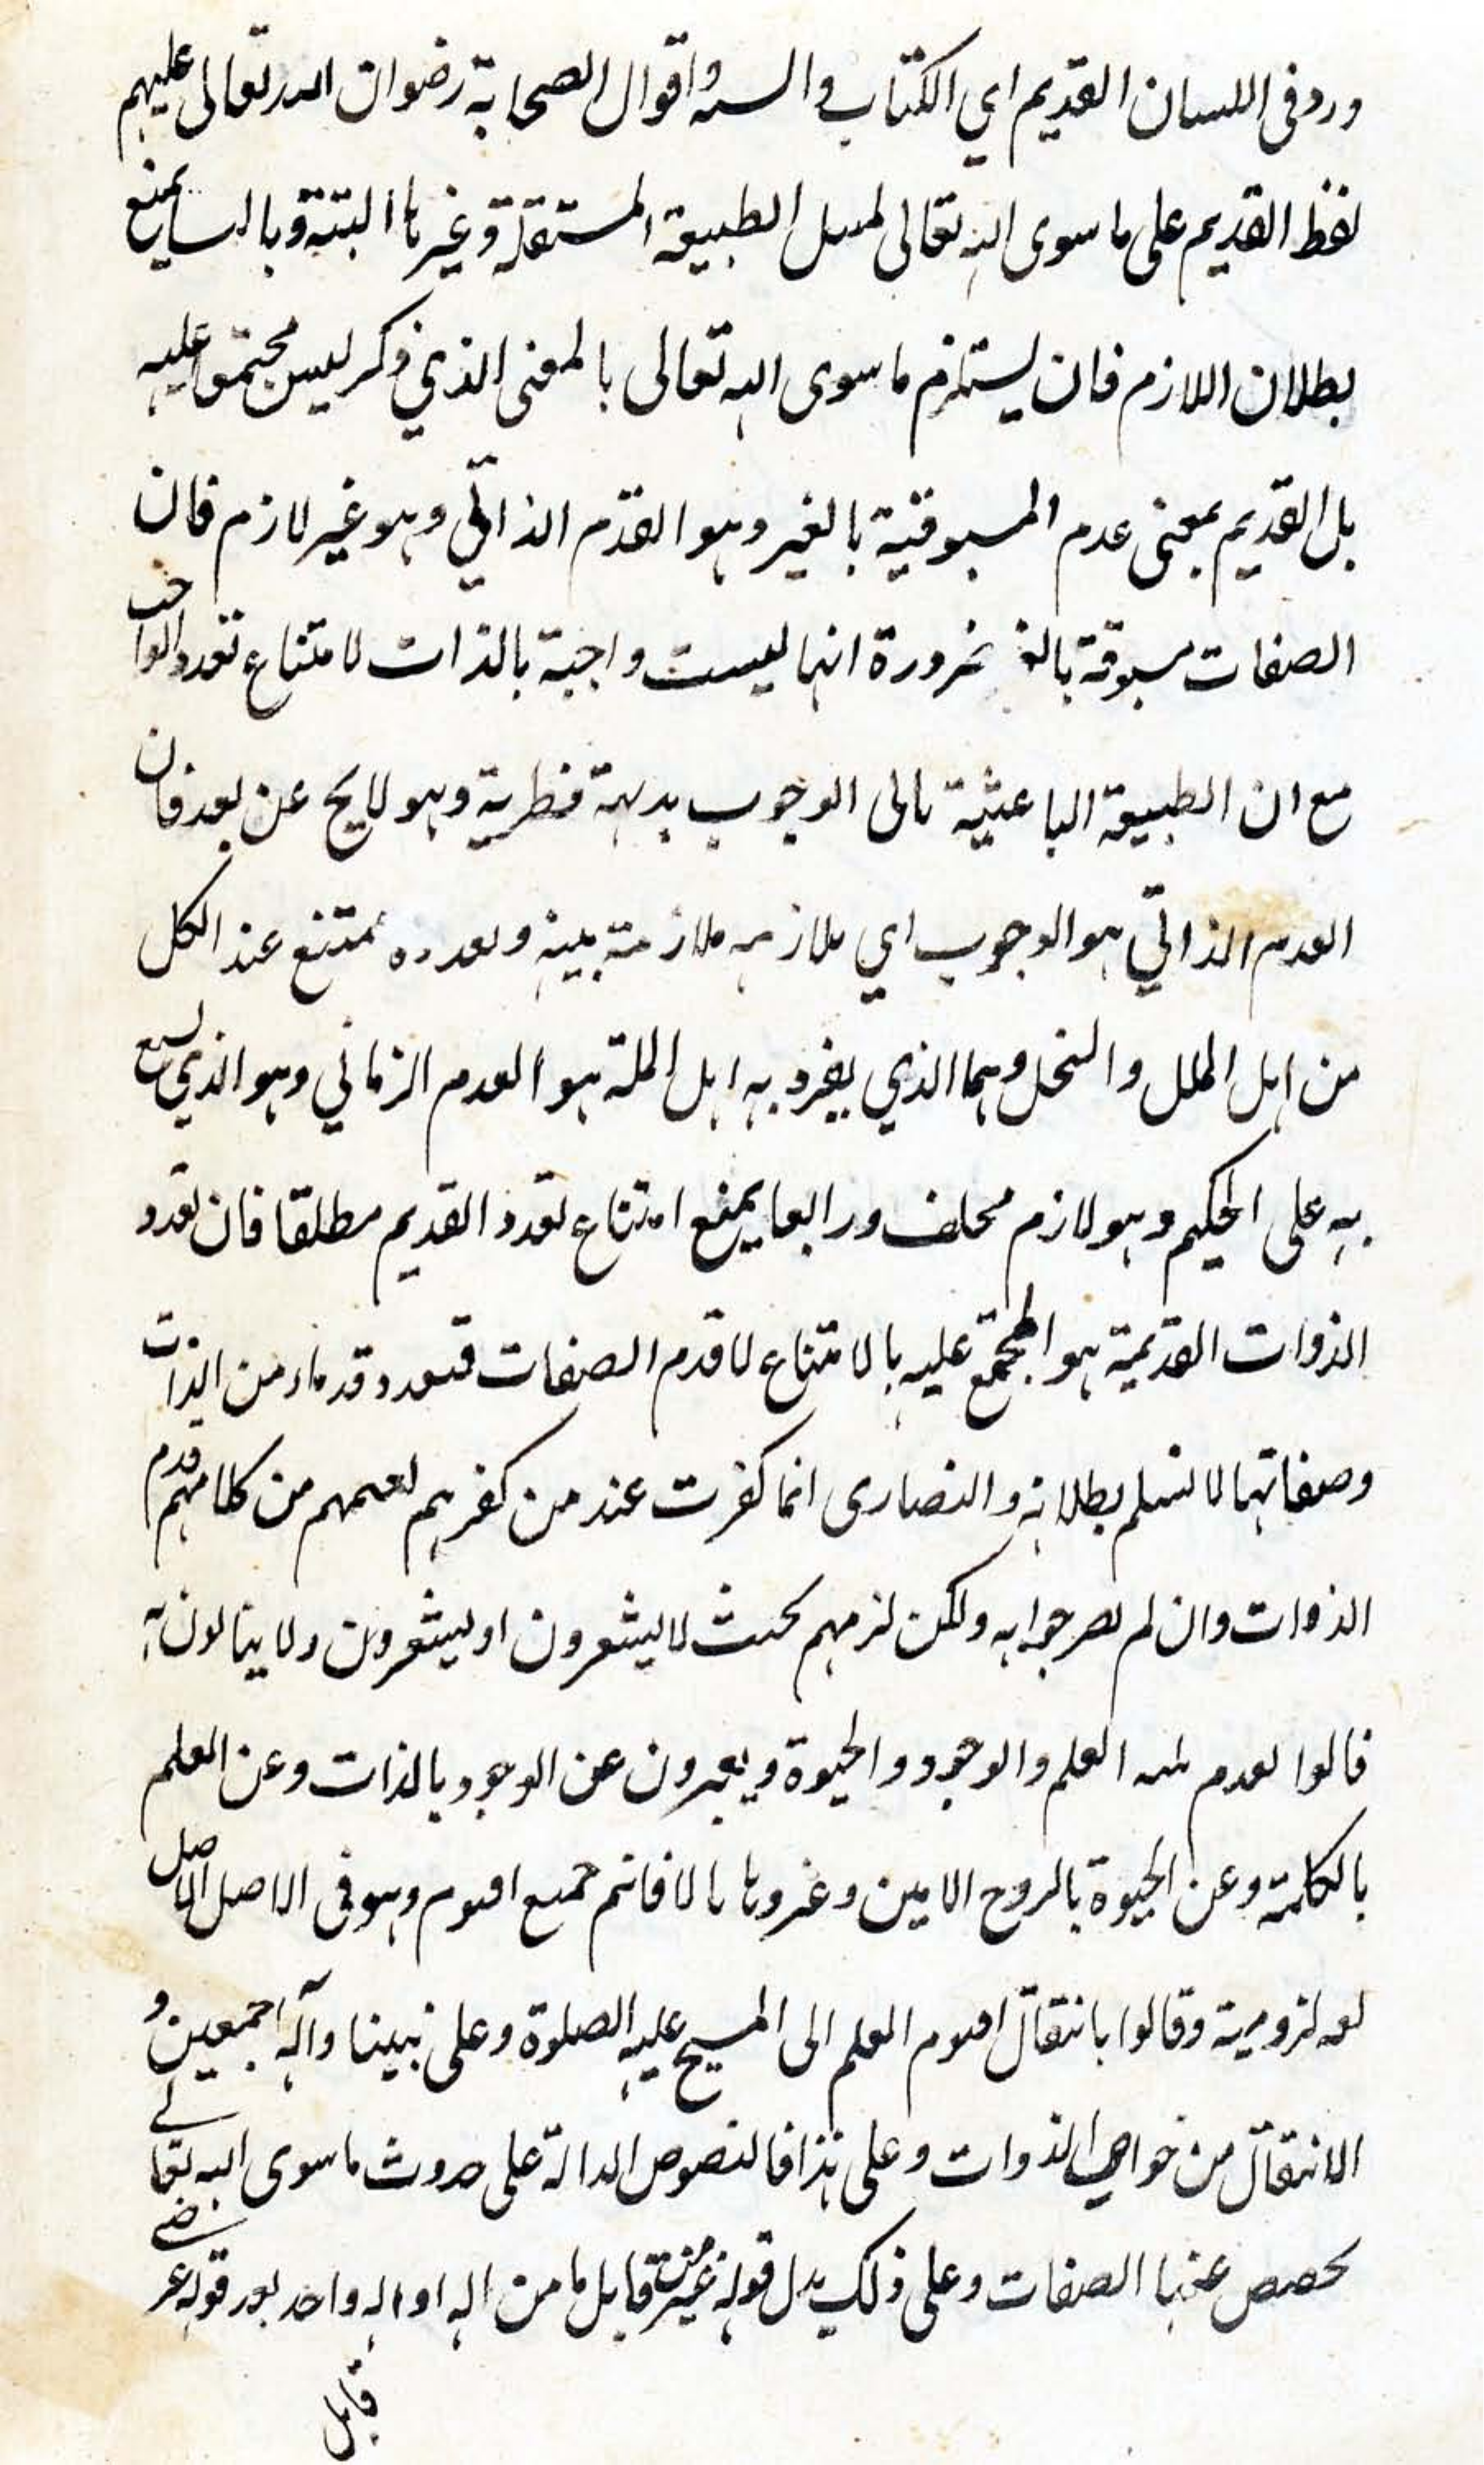 ورد فى اللسان القديم اي الكتاب والسنه واقوال الصحابة رضوان الله تعالى عليهم
لفظ القديم على ما سوى الله تعالى لمثل الطبيعة المستقلة وغيرها البتة وبالسا يمنع
بطلان اللازم فان يستلزم ما سوى الله تعالى بالمعنى الذي ذكر ليس مجتمعا عليه
بل القديم بمعنى عدم المسبوقية بالغير وهو القدم الذاتي وهو غير لازم فان
الصفات مسبوقة بالغ ضرورة انها ليست واجبة بالذات لامتناع تعدد الواجب
مع ان الطبيعة الباعثية تالى الوجوب بديهة فطرية وهو لايح عن بعد فان
القدم الذاتي هو الوجوب اي ملازمه ملازمة بينه وتعدده ممتنع عند الكل
من اهل الملل والنحل وهما الذي يفرد به اهل الملة هو القدم الزماني وهو الذي يسع
به على الحكيم وهو لازم محلف ورابعا يمنع امتناع تعدد القديم مطلقا فان تعدد
الذوات القديمة هو المجمع عليه بالامتناع لا قدم الصفات فتعدد قدماء من الذات
وصفاتها لا نسلم بطلانه والنصارى انما كفرت عند من كفرهم لفهمهم من كلامهم قدم
الذوات وان لم يصرحوا به ولكن لزمهم بحيث لا يشعرون او يشعرون ولا ينالون به
قالوا بقدم ثلثه العلم والوجود والحيوة ويعبرون عن الوجود بالذات وعن العلم
بالكلمة وعن الحيوة بالروح الامين وغيروها بالاقانم جميع اقنوم وهو فى الاصل الاصل
لغه لزومية وقالوا بانتقال اقنوم العلم الى المسيح عليه الصلوة وعلى نبينا وآله اجمعين و
الانتقال من خواص الذوات وعلى هذا فالنصوص الدالة على حدوث ما سوى الله تعالى
يخصص عنها الصفات وعلى ذلك يدل قوله عز من قايل ما من اله او اله واحد بعد قوله عز
قايل